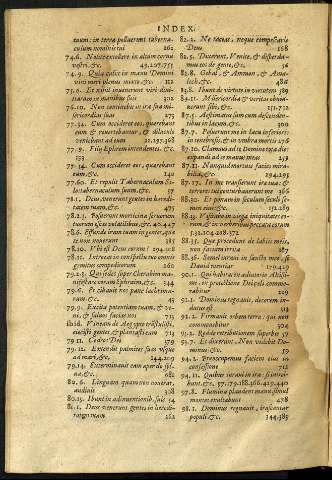 INDEX.
tuum: in terra polluerunt taberna-
culum nominis tui 262
74.6. Nolite extollere in altum cornu
vestrum, &c. 49,207,733
74.9. Quia calix in manu Domini
vini meri plenus mixto &c. 211
75.6. Et nihil invenerunt viri divi-
tiarum in manibus suis 302
76.10. continebit in ira sua mi-
sericordias suas 275
77.34. Cum occideret eos, quærebant
eum, & revertebantur, & diluculo
veniebant ad eum
77.9. Filij Ephrem intendentes, &c.
153
77.34. Cum occideret eos, quærebant
eum, &c. 140
77.60. Et repulit Tabernaculum Si-
lo tabernaculum suum, &c. 57
78.1. Deus, venerunt gentes in hæredi-
tatem tuam, &c. 475
78.2.3. Posuerunt morticina servorum
tuorum escas volatilibus, &c. 40.447
78.6. Effunde iram tuam in gentes, quæ
te non noverunt 385
78.10. Ubi est Deus eorum? 294.308
78.11. Introeat in conspectu tuo gemi-
tus compeditorum 260
79.2.3. Qui sedes super Cherubim ma-
nifestare coram Ephraim, &c. 534
79.6. Et cibabis nos pane lachryma-
rum, &c. 45
79.9. Excita potentiam tuam, & ve-
ni, & salvos facias nos 731
ibid. Vineam de Aegypto transtulisti,
eiecisti gentes, & plantasti eam 713
79.11. Cedros Dei 379
79.12. Extendit palmites suos usque
ad mare, &c. 144,209
79.14. Exterminavit eam aper de syl-
va, &c. 682
80.6. Linguam quam non noverat,
audivit 308
80.13. Ibunt in adinventionib. suis 54
81.1. Deus venerunt gentes in hæredi-
tatem tuam 262
82.2. Ne taceas, neque compescaris
Deus 168
82.5. Dixerunt, Venite, & disperda-
mus eos de gente, &c. 56
82.8. Gebal, & Ammon, & Ama-
lech, &c. 486
83.8. Ibunt de virtute in virtutem 389
84.11. Misericordia & veritas obvia-
verunt sibi, &c. 251.722
87.5. Aestimatus sum cum descenden-
tibus in lacum, &c. 300
87.7. Posuerunt me in lacu inferiori:
in tenebrosis, & in umbra mortis 389
87.10. Clamavi ad te Domine tota die:
expandi ad te manus meas 259
87.11. Nunquid mortuis facies mira-
bilia, &c. 294.295
87.17. In me transierunt iræ tuæ: &
terrores tui conturbaverunt me 166
88.30. Et ponam in seculum seculi se-
men eius, &c. 151.289
88.33. Visitabo in virga iniquitates eo-
rum, & in verberibus peccata eorum
88.35. Quæ procedunt de labiis meis,
non faciam irrita 387
88.36. Semel iuravi in sancto meo, si
David mentiar
90.1. Qui habitat in adiutorio Altissi-
mi: in protectione Dei cæli commo-
rabitur
92.1. Dominus regnavit, decorem in-
dutus est 313
92.1. Firmavit orbem terræ: qui non
commovebitur 302
93.2. Redde retributionem superbis
93.7. Et dixerunt, Non videbit Do-
minus, &c. 59
94.2. Præoccupemus faciem eius in
confessione 712
94.11. Quibus iuravi in ira: si introi-
bunt, &c. 57.179.188.366.429.440
97.8. Flumina plaudent manu, simul
montes exultabunt 478
98.1. Dominus regnavit, irascantur
populi, &c. 144,389